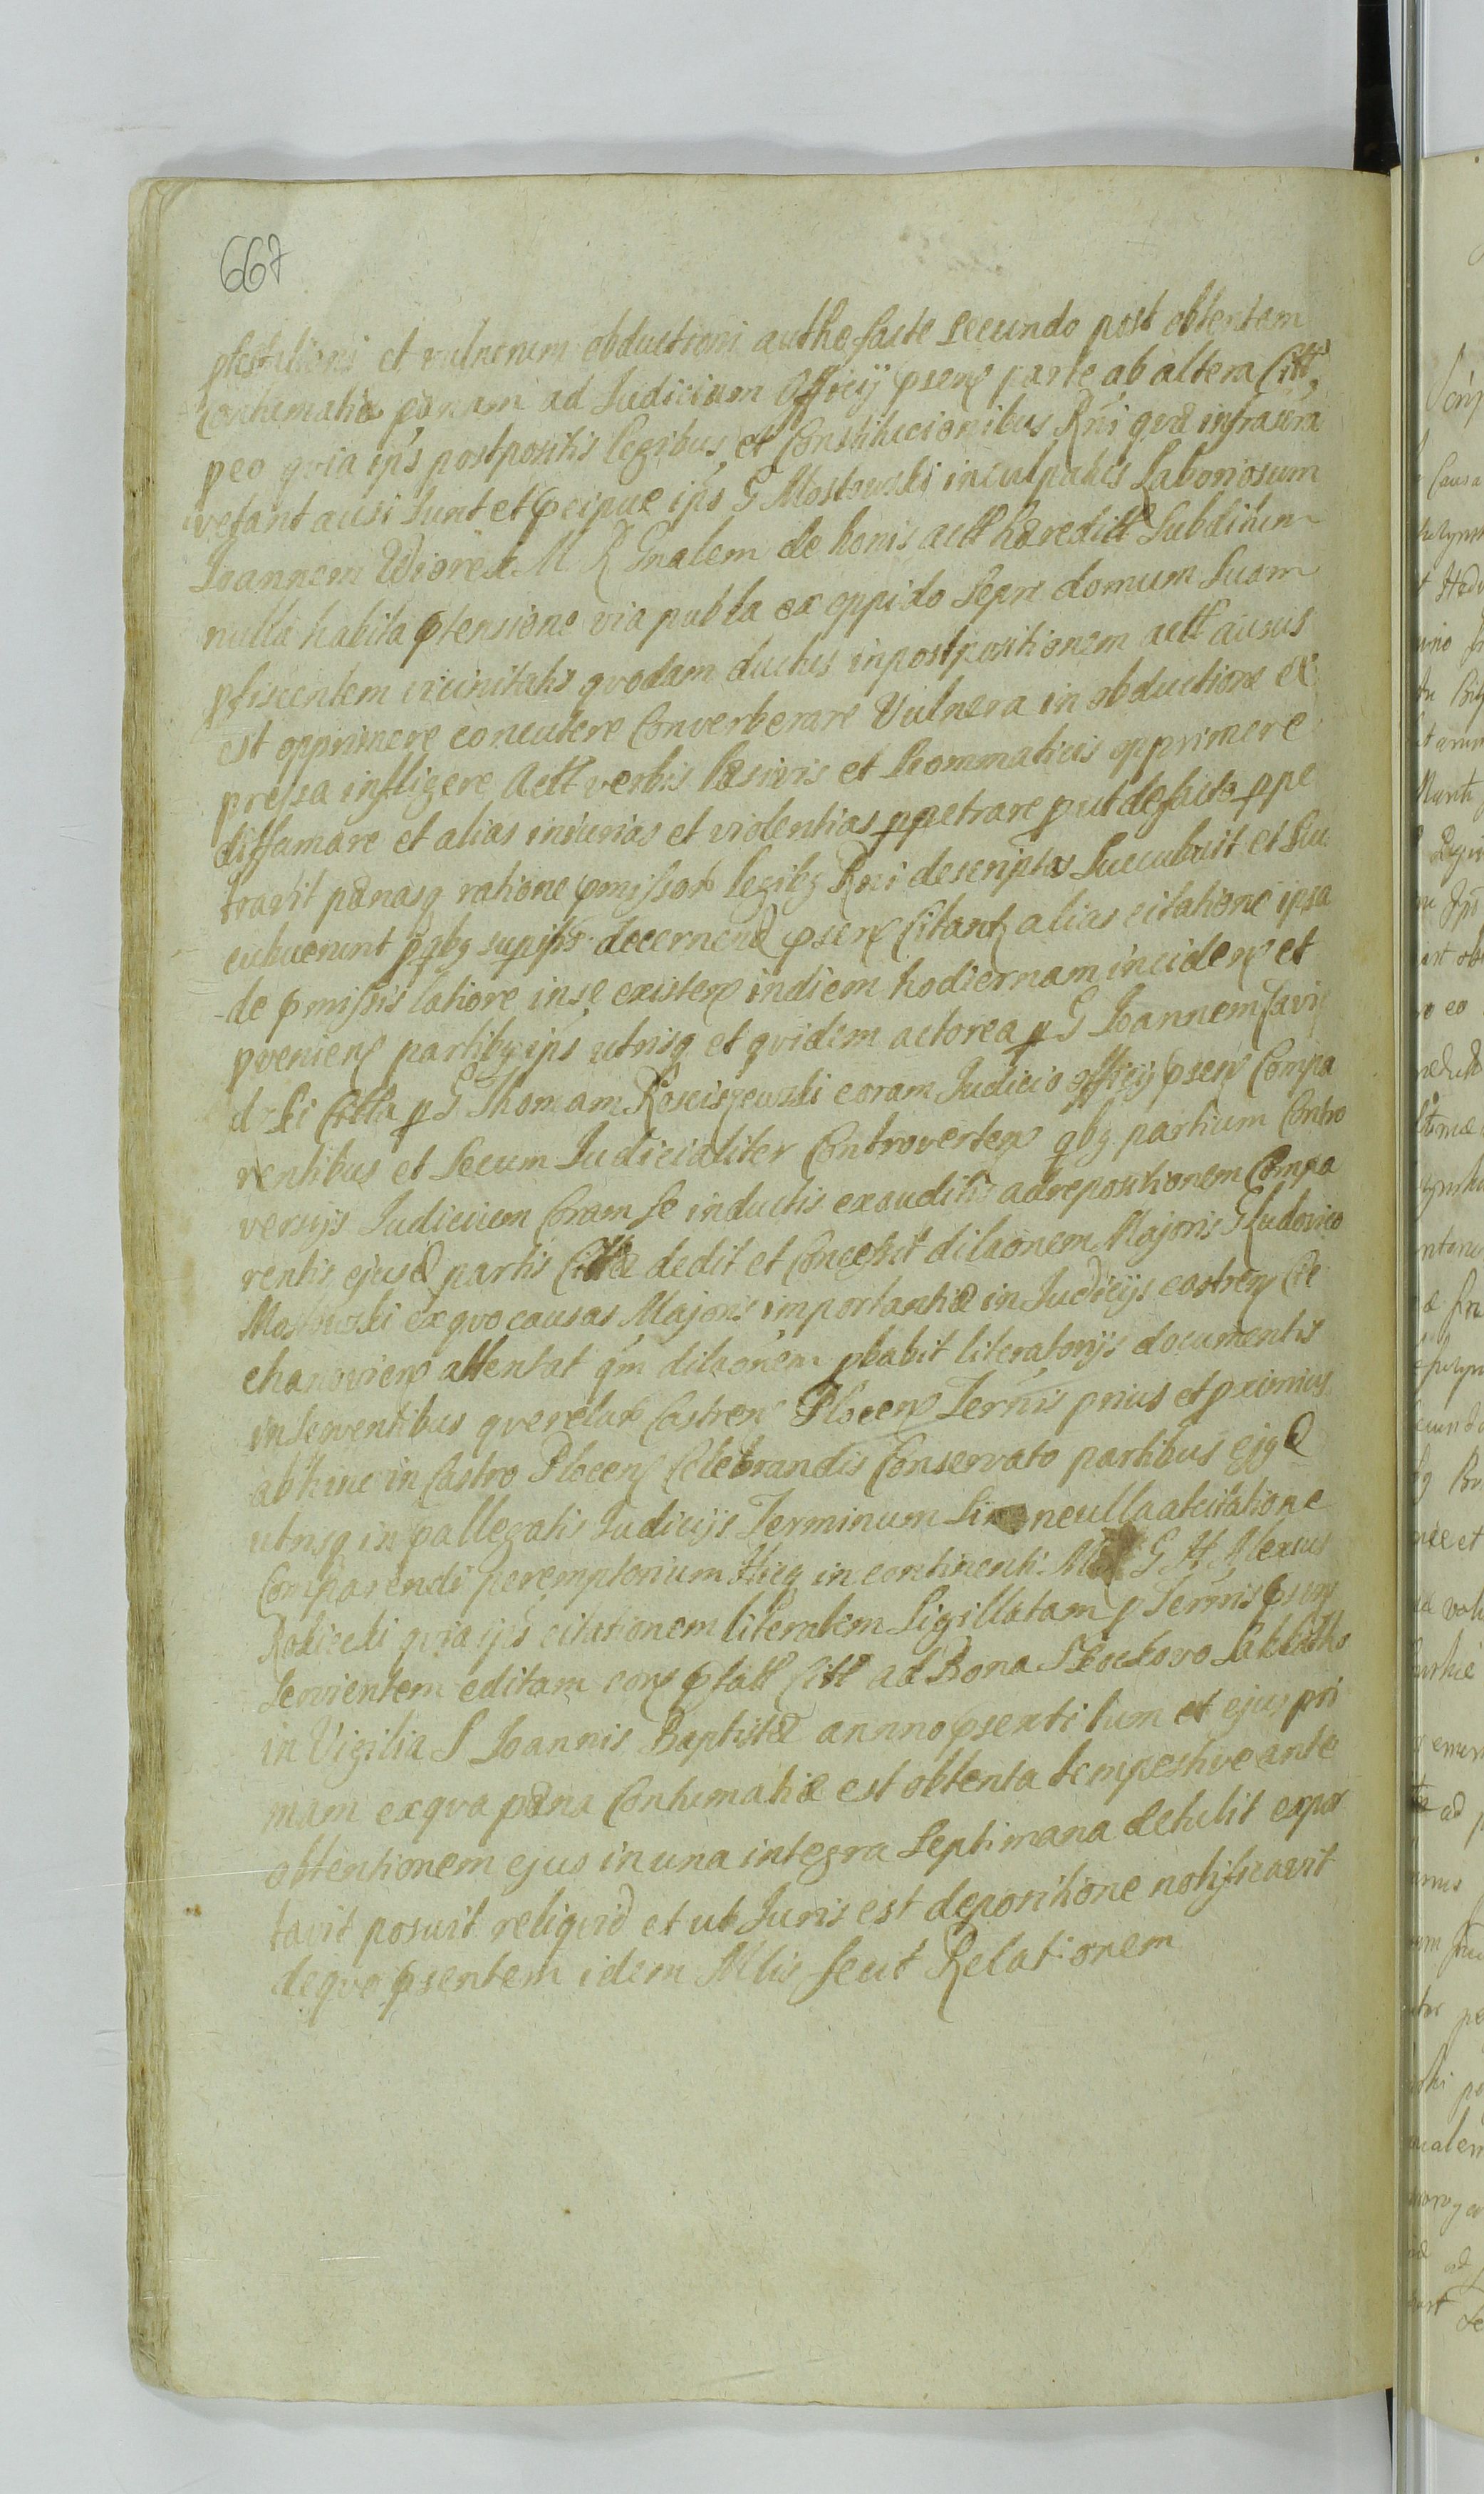 667
et vulnerum obductioni authe facte secundo post obtentam
contumatiæ pœnam ad Judicium Officij psen parte ab altera Citt
peo quia ips postpositis legibus et Constitucionibus Rni qvæ infra scra
vetant ausi sunt et pcipue ips G Mostowski inculpatis Laboriosum
Joannem Wiorek M R Gnalem de bonis actt hæreditt Subditum
nulla habita ptensione via publa ex oppido Sepr domum Suam
pficiscentem vicinitatis qvodam ductus in postpositionem actt ausus
est opprimere concutere Converberare Vulnera in obductione ex
pressa infligere Actt verbis læsivis et scommaticis opprimere
diffamare et alias iniurias et violentias ppetrare put de facto ppe
travit pænasq ratione pmissor legibq Rni descriptas Succubuit et Su
cubuerunt pqbq sup ips decernend psen Citant alias citatione ipsa
de pmissis latiore in se existen in diem hodiernam inciden et
pvenien partibq ips utrisq et qvidem actorea p G Joannem
Citta p G Thomam Rosciszewski coram Judicio officij psen Compa
rentibus et Secum Judicialiter Controverten qbq partium Contro
versijs Judicium Coram se inductis exauditis ad repositionem Compa
rentis ejusd partis Cittæ dedit et Concessit dilaonem Majoris G Ludovico
Mostowski ex qvo causas Majoris importantiæ in Judicijs castren Cie
chanovien attentat qm dilaonem pbabit literatorijs documentis
inservientibus qverelar Castren Plocen Ternis prius et pximius
abhinc in Castro Plocen Celebrandis Conservato partibus ejqd
utrisq in pallegatis Judicijs Terminum Sine ulla adcitatione
Comparendi peremptorium Hicq in continenti G H Alexius
Rokicki qvia ips citationem literalem Sigillatam p Ternis psen
Servientem editam con pfatt Citt ad Bona
in Vigilia S Joannis Baptistæ annno psenti lum et ejus pri
mam ex qva pæna Contumatiæ est obtenta tempestive ante
obtentionem ejus in una integra Septimana detulit expor
tavit posuit reliquid et ut Juris est depositione notificavit
de qvo psentem idem Mlis fecit Relationem